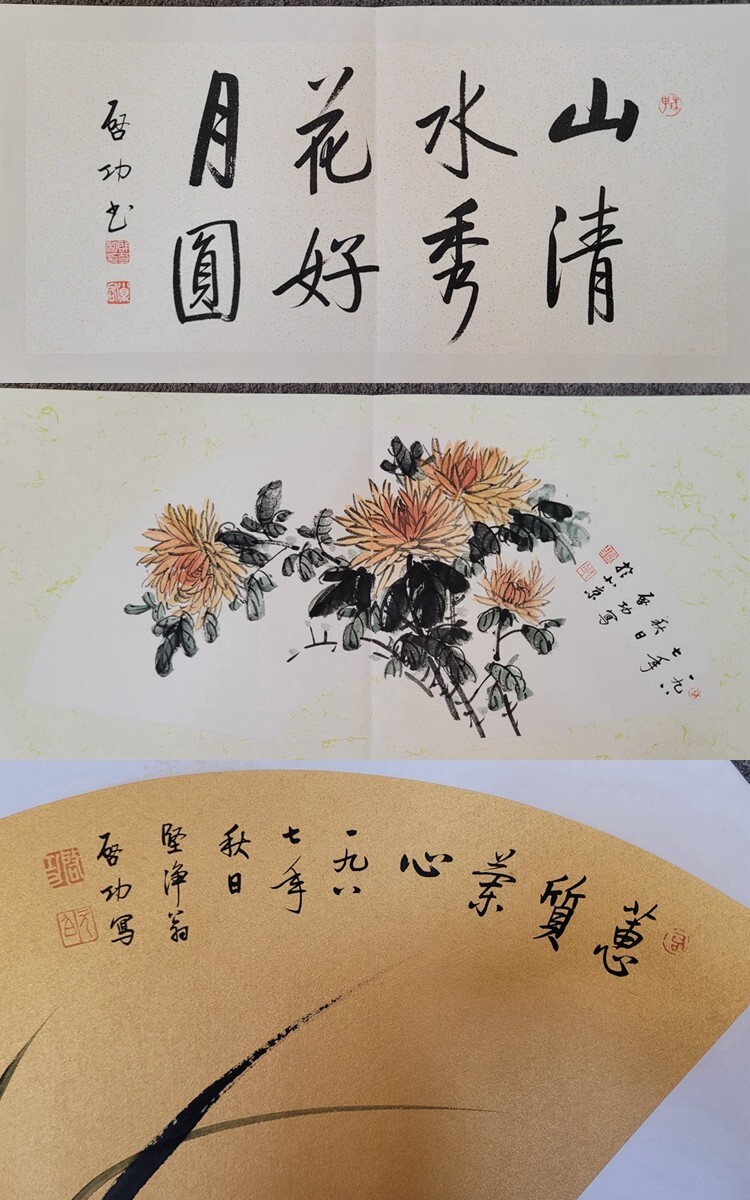 山清
水秀
花好
月圓
啓功书
一九八
七年
秋日
啓功寫
於北京
蕙
質
蘭
心
一九八
七年
秋日
堅淨翁
啓功寫